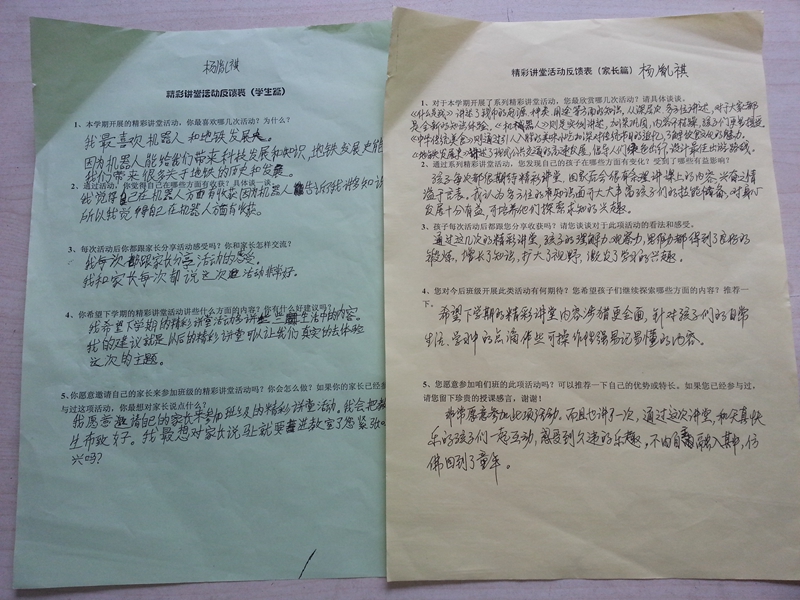 杨胤祺
精彩讲堂活动反馈表（学生篇）
1、本学期开展的精彩讲堂活动，你最喜欢哪几次活动？为什么？
我最喜欢机器人和地铁发展史。
因为机器人能给我们带来科技发展和知识，地铁发展史能
我们带来很多关于地铁的历史和发展
2、通过活动，你觉得自己在哪些方面有收获？具体谈一谈。
我觉得自己在机器人方面有收获因为机器人告诉我许多知识
所以我觉得自己在机器人方面有收获。
3、每次活动后你都跟家长分享活动感受吗？你和家长怎样交流？
我每次都跟家长分享活动的感受。
我和家长每次都说这次活动非常好。
4、你希望下学期的精彩讲堂活动讲些什么方面的内容？你有什么好建议吗？
我希望下学期的精彩讲堂活动多讲些生活中的内容。
我的建议就是以后的精彩讲堂可以让我们真实的去体验
这次的主题。
5、你愿意邀请自己的家长来参加班级的精彩讲堂活动吗？你会怎么做？如果你的家长已经参
与过这项活动，你最想对家长说点什么？
我愿意邀请自己的家长来参加班级的精彩讲堂活动。我会把
生布致好。我最想对家长说马上就要进教室了您紧张
兴吗？
精彩讲堂活动反馈表（家长篇）
杨胤祺
1、对于本学期开展了系列精彩讲堂活动，您最欣赏哪几次活动？请具体谈谈。
讲述了钱币的起源、种类、用途等方面的知识，从深层次、多方位讲述，对于大家都
是全新的知识体验。《机器人》则是实例讲述，加深巩固，内容有探索，孩子们
《中华传统美食》则通过引人入胜的美味小吃加深对传统节日的理化，了解饮食文化的魅力。
《地铁发展史》讲述了现代公共交通的高速发展，倡导人们绿色出行，设计最佳出行路线。
2、通过系列精彩讲堂活动，您发现自己的孩子在哪些方面有变化？受到了哪些有益影响？
孩子每次都很期待精彩讲堂，回家后会很有条理讲课上的内容，兴奋之情
溢于言表。我认为多方位的新知识面可大大丰富孩子们的技能储备，对身心
发展十分有益，可培养他们探索求知的兴趣。
3、孩子每次活动后都跟您分享收获吗？请您谈谈对于此项活动的看法和感受。
通过这几次的精彩讲堂，孩子的理解力、观察力、思维力都得到了良好的
锻炼，增长了知识，扩大了视野，激发了学习的兴趣。
4、您对今后班级开展此类活动有何期待？您希望孩子们继续探索哪些方面的内容？推荐一
下。
希望下学期的精彩讲堂内容涉猎更全面，针对孩子们的日常
生活、是水中的点滴作些可操作性强易记易懂的内容。
5、您愿意参加咱们班的此项活动吗？可以推荐一下自己的优势或特长。如果您已经参与过，
请您留下珍贵的授课感言，谢谢！
非常愿意参加此项活动。而且也讲了一次，通过这次讲堂，和天真快
乐的孩子们一起互动，感受到久违的乐趣，不由自主融入其中，仿
佛回到了童年。